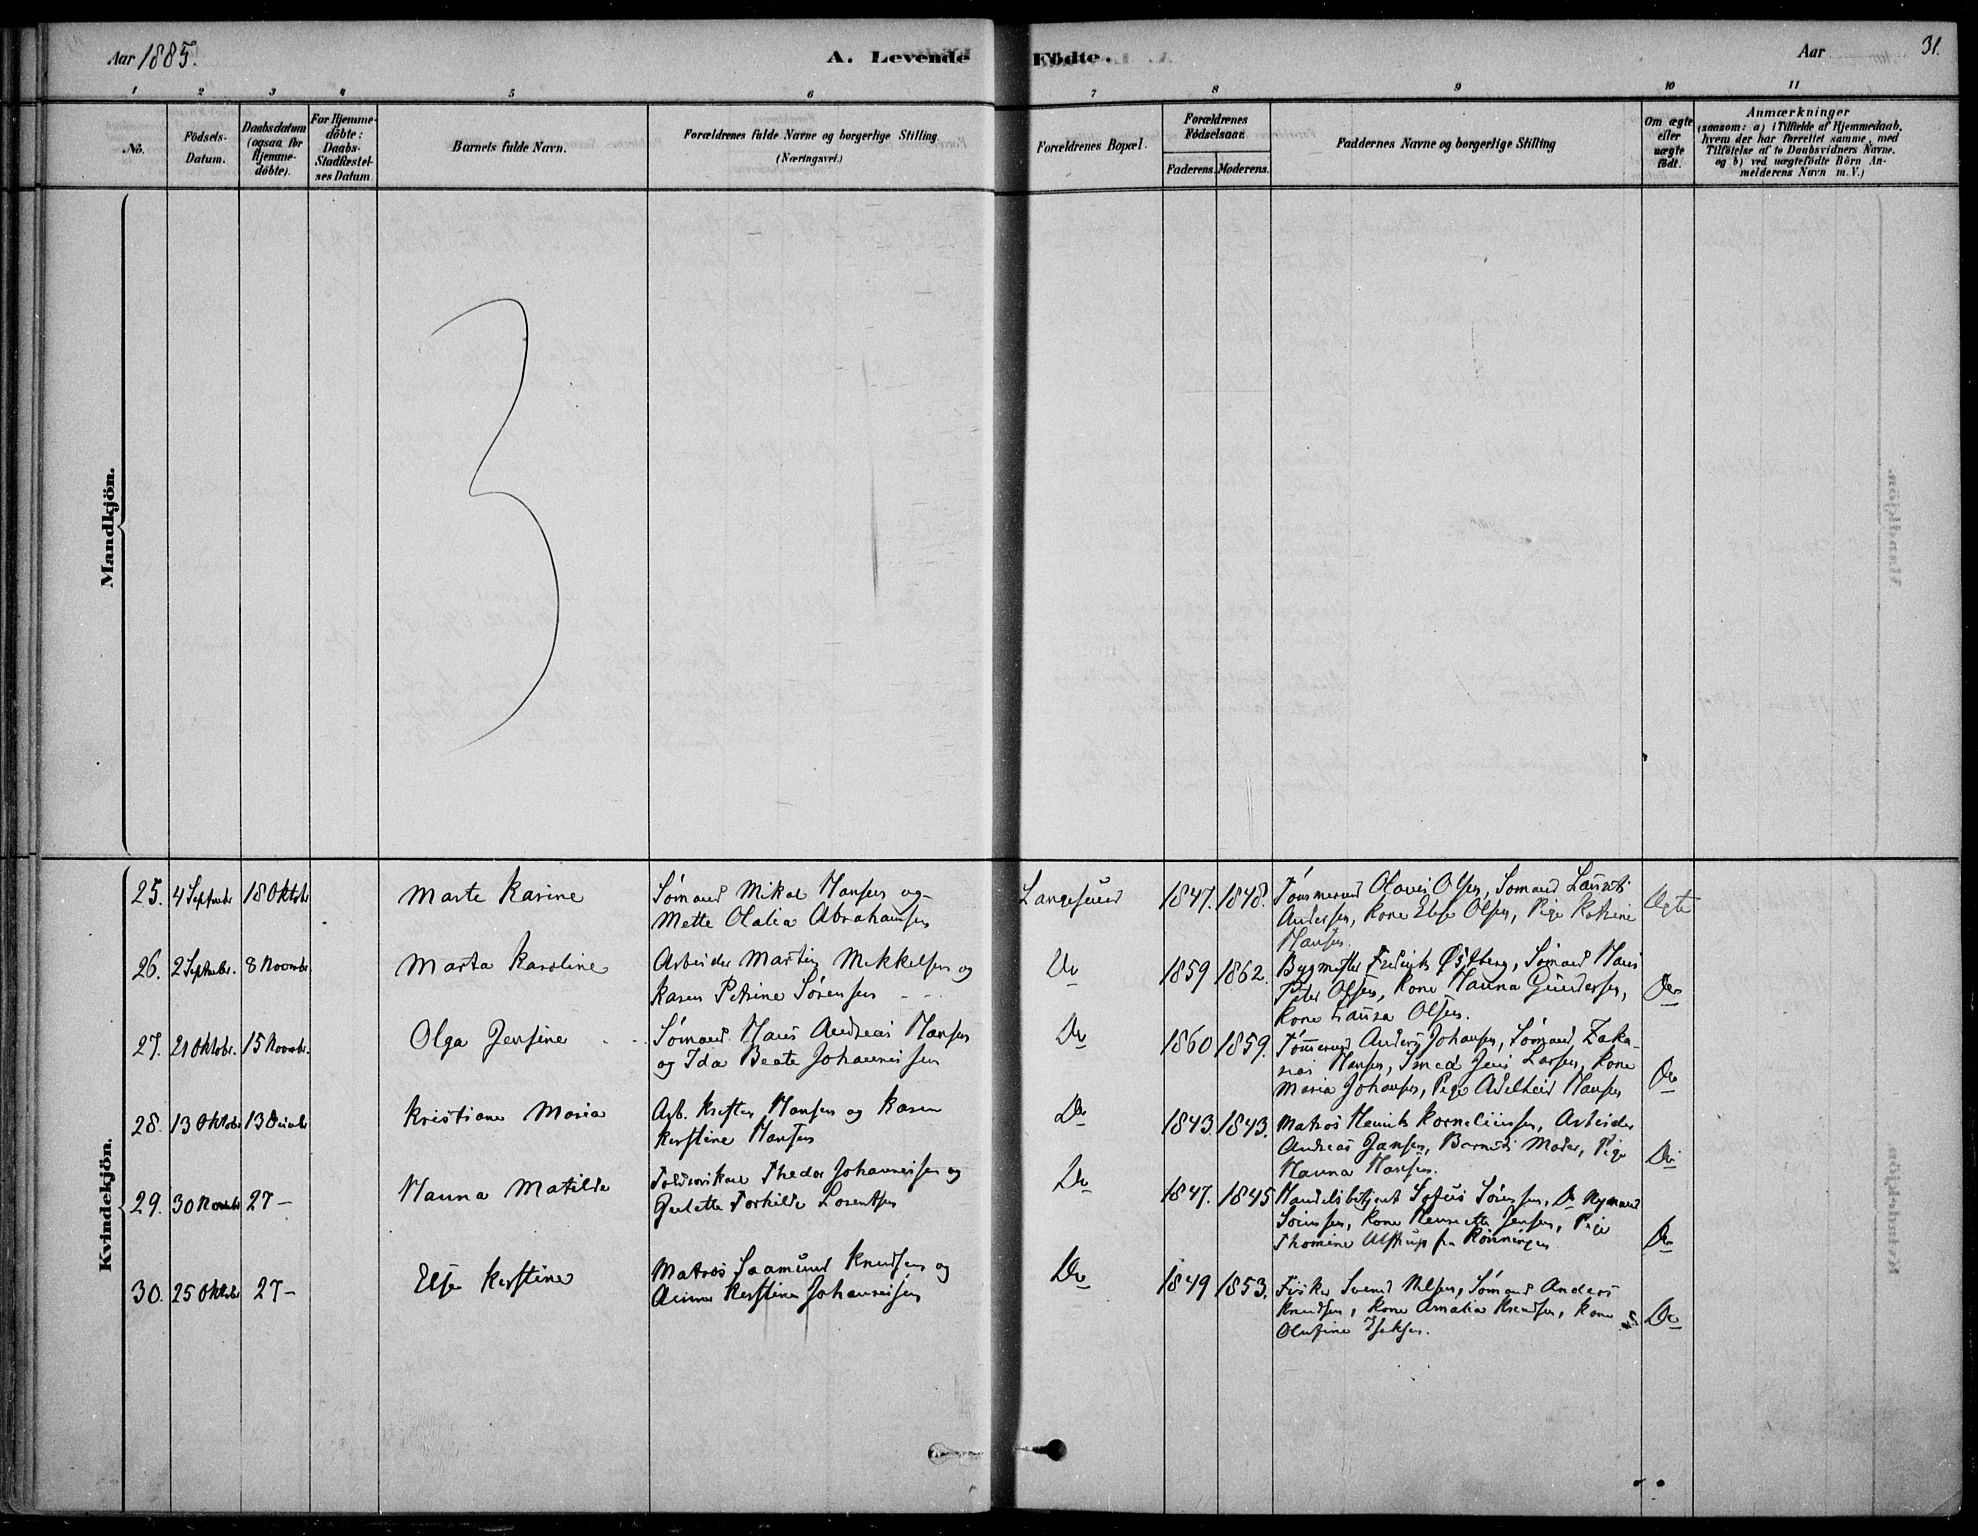 Aar 1885.
A. Levende
Födte.
Aar
31.
1 2 3 4 5 6 7 8 9 10 11
No.
Födsels-
Datum.
Daabsdatum
(ogsaa for
Hjemme-
döbte).
For Hjemme-
döbte:
Daabs-
Stadfæstel-
ses Datum.
Barnets fulde Navn.
Forældrenes fulde Navne og borgerlige Stilling.
(Næringsvei.)
Forældrenes Bopæl.
Forældrenes
Födselsaar.
Faderens. Moderens.
Faddernes Navne og borgerlige Stilling
Om ægte
eller
uægte
födt.
Anmærkninger
(saasom: a) i Tilfælde af Hjemmedaab,
hvem der har forrettet samme, med
Tilföielse af to Daabsvidners Navne.
og b) ved uægtefödte Börn An-
melderens Navn m.V.)
Mandkjön.
Kvindekjön.
25. 4 Septembr 18 Oktobr
Marte Karine
Sømand Mikal Hansen og
Mette Olalia Abrahamsen
Langesund
1847. 1848.
Tømmermd Olaves Olsen, Sømand Laurits
Andersen, Kone Else Olsen, Pige Katrine
Hansen.
Ægte
26. 2 Septembr. 8 Novembr
Marta Karoline
Arbeider Martin Mikkelsen og
Karen Petrine Sørensen
Do
1859 1862.
Bygmester Fredrik Østberg, Sømand Hans
Peter Olsen, Kone Hanna Gundersen,
Kone Laura Olsen.
Do
27. 21 Oktobr. 15 Novembr.
Olga Jensine
Sømand. Hans Andreas Hansen
og Ida Beate Johannessen
Do
1860 1859.
Tømmermd Anders Johansen, Sømand Zaka-
rias Hansen, Smed Jens Larsen, Kone
Maria Johansen, Pige Adelheid Hansen
Do
28. 13 Oktobr 13 Decmbr
Kristiane Maria
Arb. Krister Hansen og Karen
Kerstine Hansen
Do
1843 1843.
Matros Henrik Korneliussen, Arbeider
Andreas Jansen, Barnets Moder, Pige
Hanna Hansen.
Do
29. 30 Novmbr 27 –
Hanna Matilde
Toldervikar Thedor Johannessen og
Torhilde Lorentsen
Do
1847. 1845
Handelsbetjent Sofus Sørensen, Do
Sørensen, Kone Henriette Jensen, Pige
Thomine Alstrup fra Rønningen
Do
30. 25 Oktobr 27 –
Else Kerstine
Matros Saamund Knudsen og
Anne Kerstine Johannessen
Do
1849 1853.
Fisker Svend Nilsen, Sømand Anders
Knudsen, Kone Amalia Knudsen, Kone
Olufine Isaksen.
Do